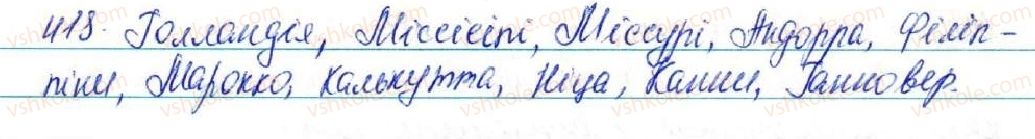 418. Голландія, Міссісіпі, Міссурі, Андорра, Філіп-
піни, Марокко, Калькутта, Ніца, Канни, Ганновер.